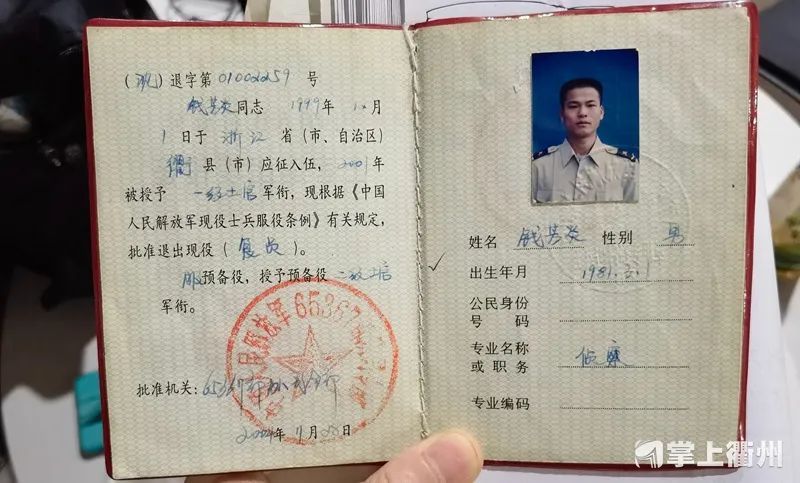 （浙）退字第01002259号
钱芳炎同志 1999年12月
1日于浙江省（市、自治区）
衢县（市）应征入伍，2001年
被授予一级士官军衔，现根据《中国
人民解放军现役士兵服役条例》有关规定，
批准退出现役（复员）。
服预备役，授予预备役二级士官
军衔。
批准机关：
2004年11月22日
姓名 性别 男
出生年月 1981.2.1
公民身份
号码
专业名称
或职务 侦察
专业编码
掌上衢州